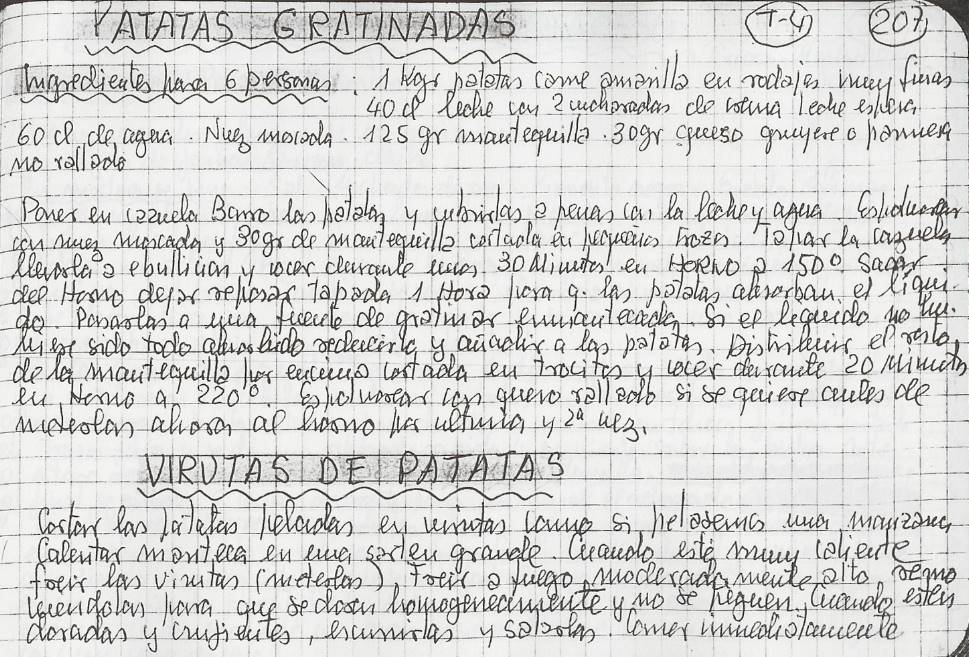 PATATAS GRATINADAS T-4 207
Ingredientes para 6 personas : 1 Kgr patatas carne amarilla en rodajas muy finas
40 cl leche con 2 cucharadas de crema leche espesa
60 cl de agua. Nuez moscada. 125 gr mantequilla. 30gr queso gruyere o parmesa
no rallado
Poner en cazuela Barro las patatas y cubrirlas a penas con la leche y agua. Espolvorear
con nuez moscada y 30gr de mantequilla cortada en pequeños trozos. Tapar la cazuela
llevarla a ebullición y cocer durante unos 30 Minutos en HORNO a 150º. Sacar
del Horno dejar reposar tapada 1 Hora para q. las patatas absorban el líqui-
do. Pasarlas a una fuente de gratinar enmantecada. Si el líquido no hu-
biese sido todo absorbido reducirlo y añadir a las patatas. Distribuir el resto
de la mantequilla por encima cortada en trocitos y cocer durante 20 Minutos
en Horno a 220º. Espolvorear con queso rallado si se quiere antes de
meterlas ahora al horno por última y 2ª vez.
VIRUTAS DE PATATAS
Cortar las patatas peladas en virutas como si pelasemos una manzana
Calentar manteca en una sarten grande. Cuando esté muy caliente
freir las virutas (meterlas), freir a fuego moderadamente alto, remo
viendolas para que se doren homogeneamente y no se peguen. Cuando esten
doradas y crujientes, escurrirlas y salarlas. Comer inmediatamente